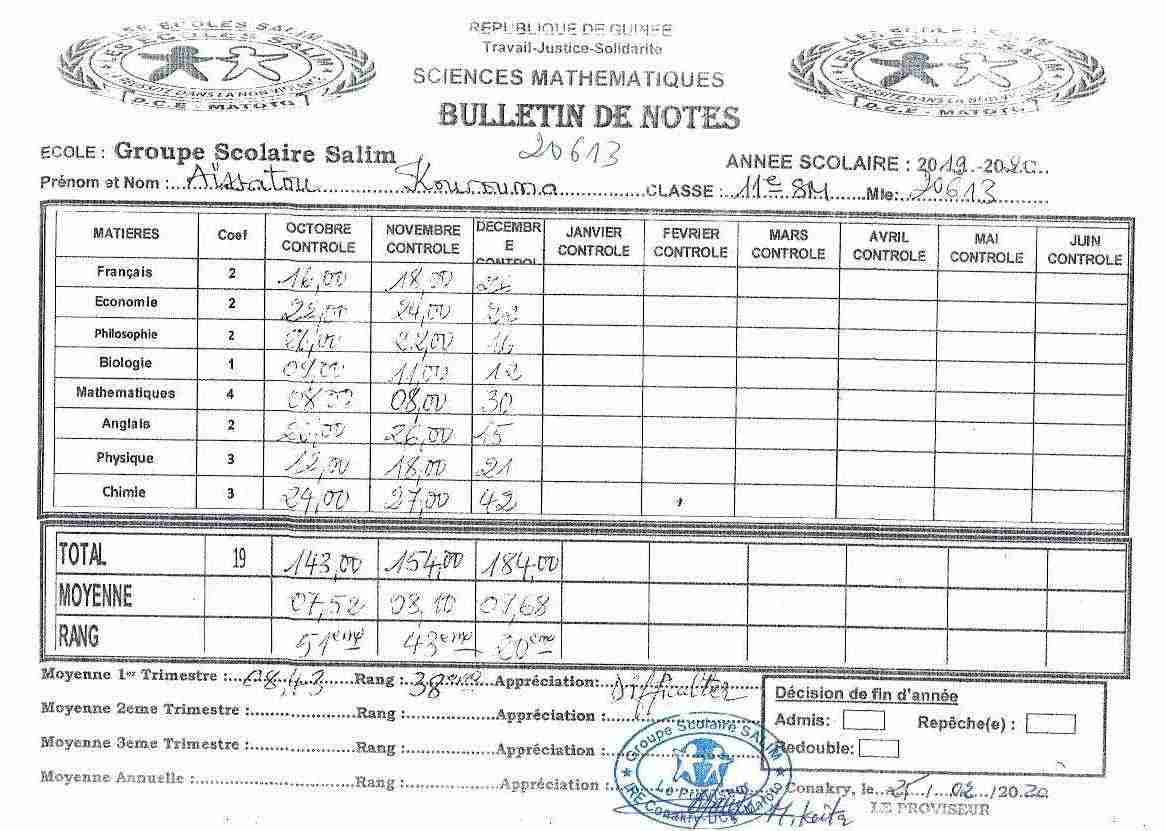 LES ECOLES SALIM
LES ECOLES SALIM
D.C.E - MATOTO
REPUBLIQUE DE GUINEE
Travail-Justice-Solidarite
SCIENCES MATHEMATIQUES
BULLETIN DE NOTES
LES ECOLES SALIM
D.C.E - MATOTO
20613
ECOLE : Groupe Scolaire Salim
ANNEE SCOLAIRE : 2019.-2020..
Prénom et Nom :..Aïssatou Kourouma CLASSE : 11e SM Mle: 20613
MATIERES Coef OCTOBRE CONTROLE NOVEMBRE CONTROLE DECEMBRE CONTROL JANVIER CONTROLE FEVRIER CONTROLE MARS CONTROLE AVRIL CONTROLE MAI CONTROLE JUIN CONTROLE
Français 2 16,00 18,00 22
Economie 2 22,00 24,00
Philosophie 2 22,00 16
Biologie 1 09,00 11,00 12
Mathematiques 4 08,00 08,00 30
Anglais 2 26,00 15
Physique 3 12,00 18,00 21
Chimie 3 24,00 27,00 42
TOTAL 19 143,00 154,00 184,00
MOYENNE 07,52 08,10
RANG 51eme 43eme
Moyenne 1er Trimestre : Rang : 38eme Appréciation:
Moyenne 2eme Trimestre : Rang : Appréciation :
Moyenne 3eme Trimestre : Rang : Appréciation :
Moyenne Annuelle : Rang : Appréciation :
Décision de fin d'année
Admis: Repêche(e) :
Redouble:
Groupe Scolaire SALIM
IRE Conakry-DCE Matoto
Conakry, le..25../..02../2020
LE PROVISEUR
M. Keita